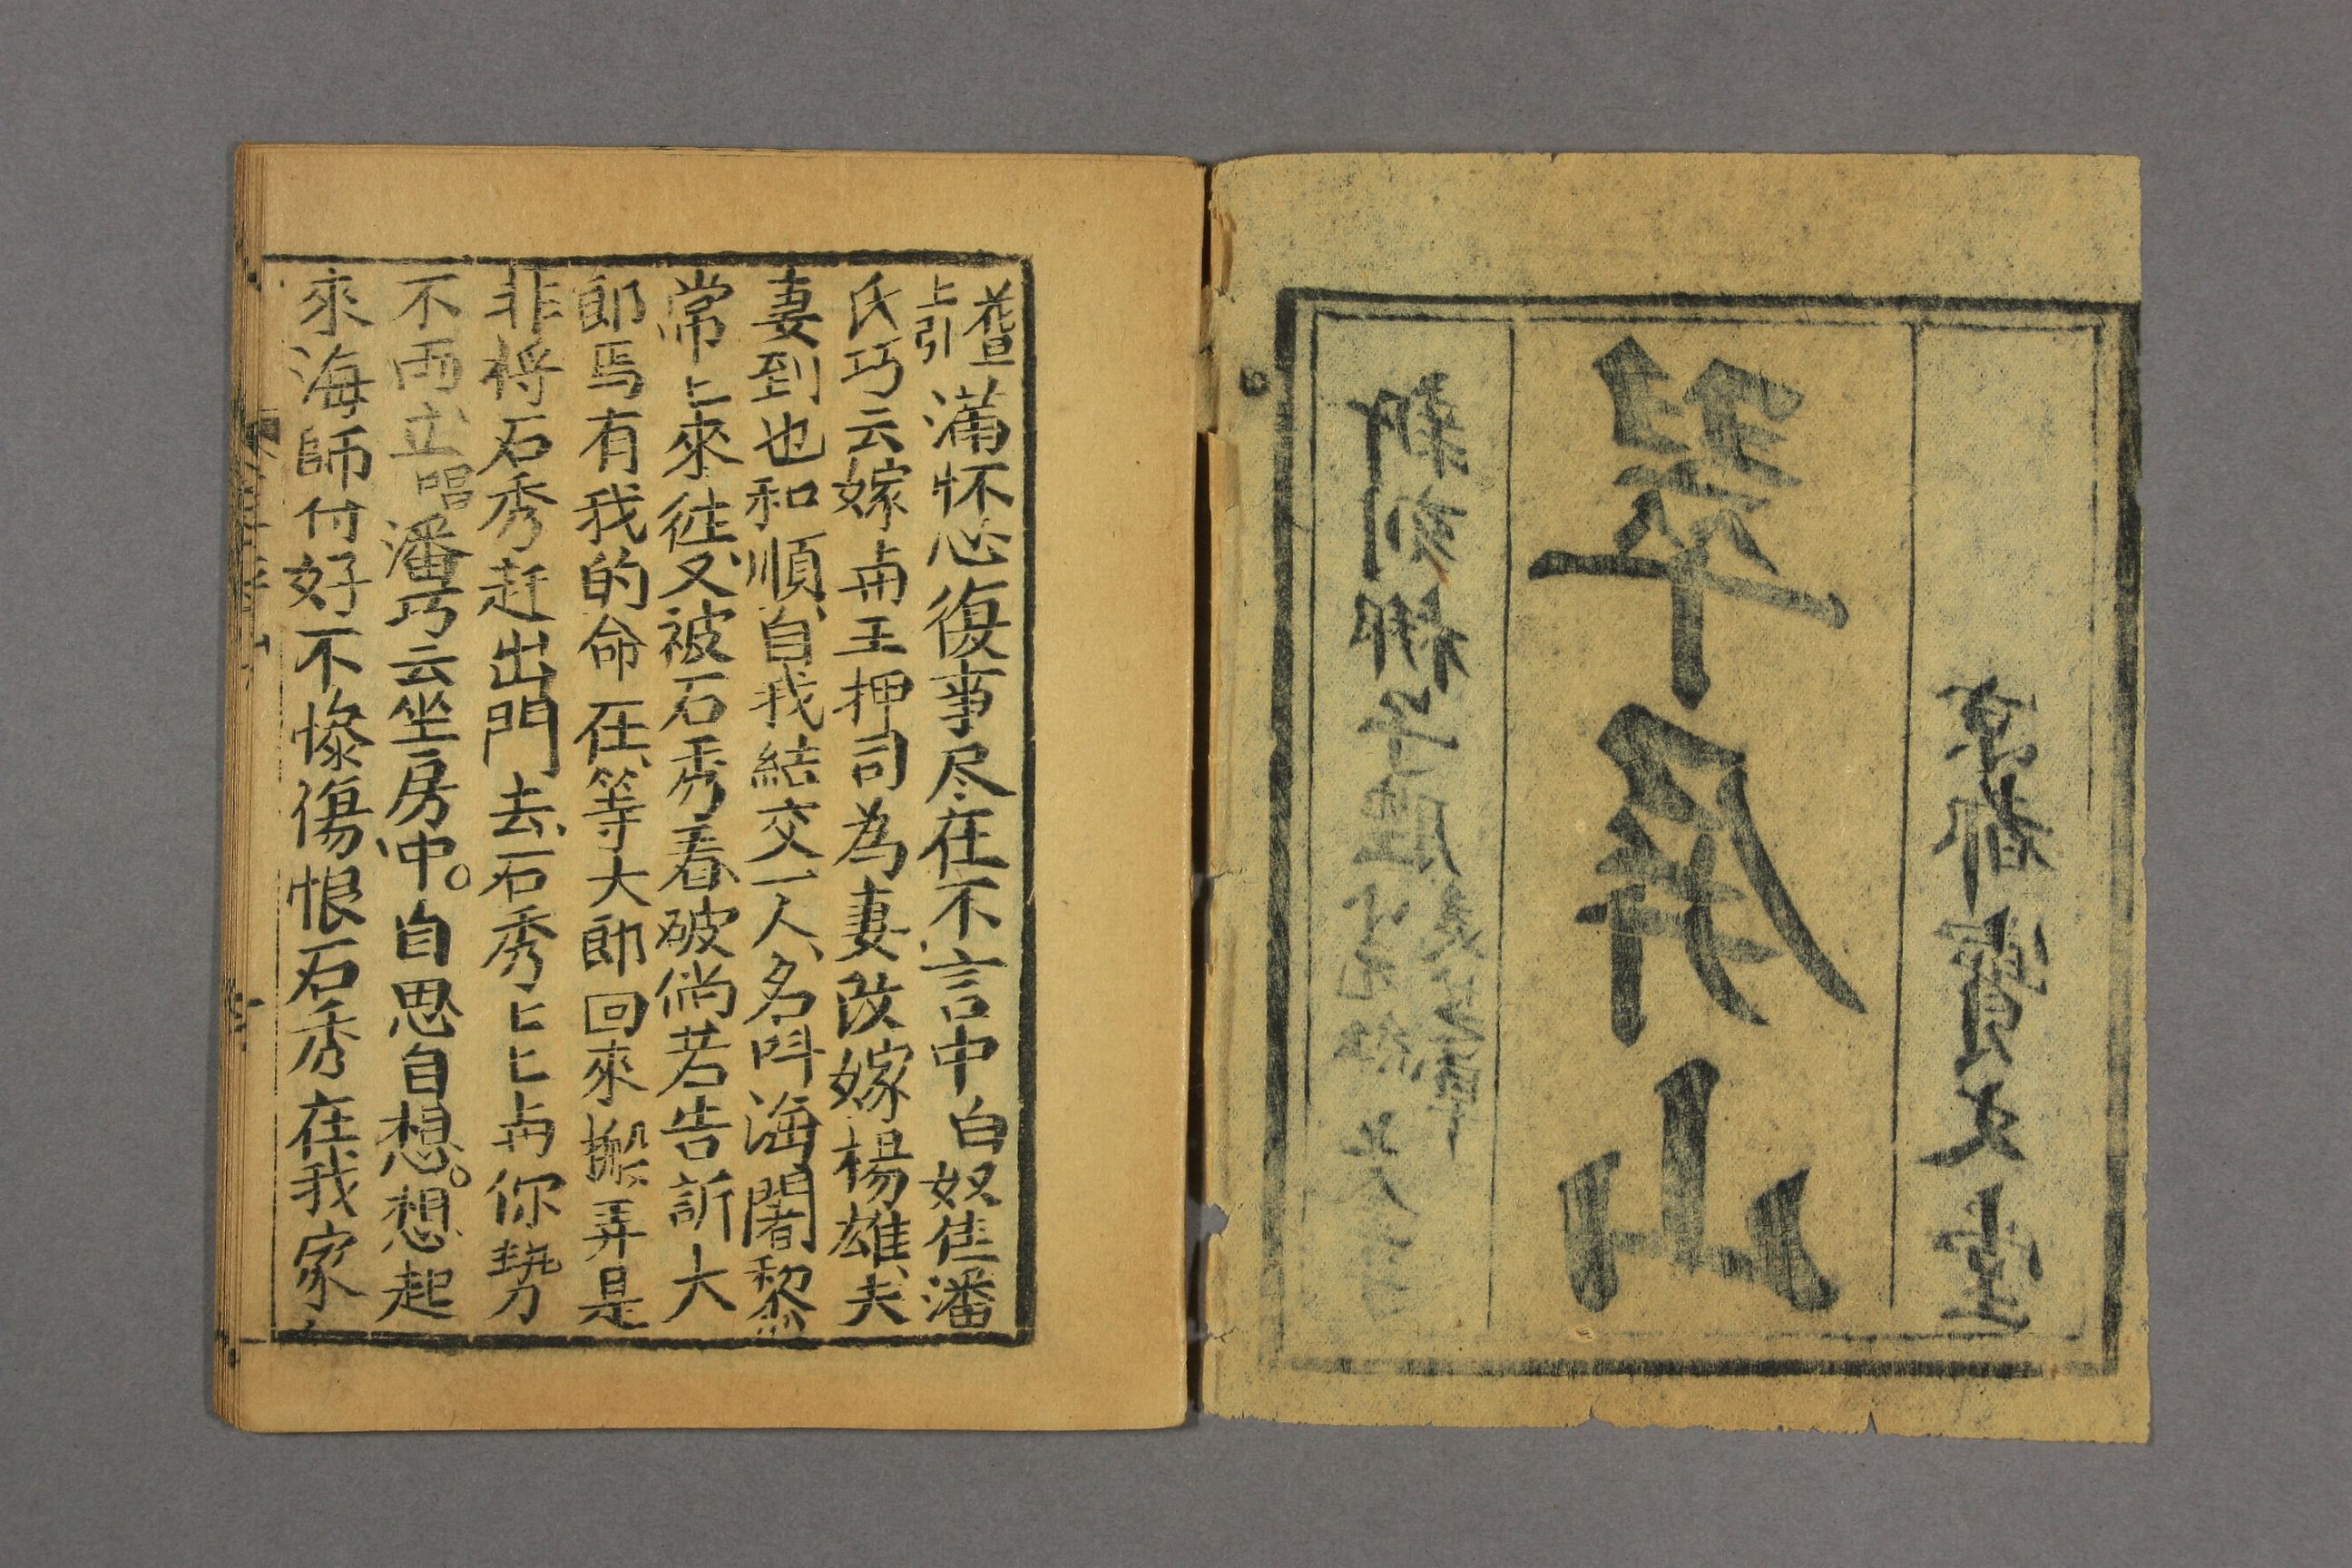 京都寶文堂
翠屏山
新刻梆子腔
花旦上引 滿怀心復事尽在不言中 白 奴隹潘
氏巧云嫁与王押司為妻改嫁楊雄夫
妻到也和順自我結交一人名呌海闍黎
常〻來徃又被石秀看破倘若告訴大
郎焉有我的命在等大郎回來搬弄是
非将石秀赶出門去石秀〻〻与你势
不両立 唱 潘巧云坐房中。自思自想。想起
來海師付好不慘傷恨石秀在我家